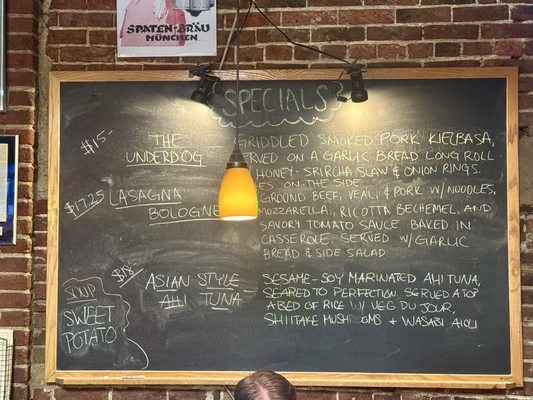 SPATEN-BRÄU
MÜNCHEN
SPECIALS
$15-
THE
UNDERDOG
GRIDDLED SMOKED PORK KIELBASA,
SERVED ON A GARLIC BREAD LONG ROLL
HONEY-SRIRCHA SLAW & ONION RINGS.
IES ON THE SIDE
$17.25
LASAGNA
BOLOGNE
GROUND BEEF, VEAL & PORK W/NOODLES,
MOZZARELLA, RICOTTA BECHEMEL, AND
SAVORY TOMATO SAUCE BAKED IN
CASSEROLE. SERVED W/GARLIC
BREAD & SIDE SALAD
$18-
ASIAN STYLE
AHI TUNA
SESAME-SOY MARINATED AHI TUNA,
SEARED TO PERFECTION SERVED ATOP
A BED OF RICE W/ VEG DU JOUR,
SHIITAKE MUSH OMS + WASABI AIOLI
SOUP
SWEET
POTATO